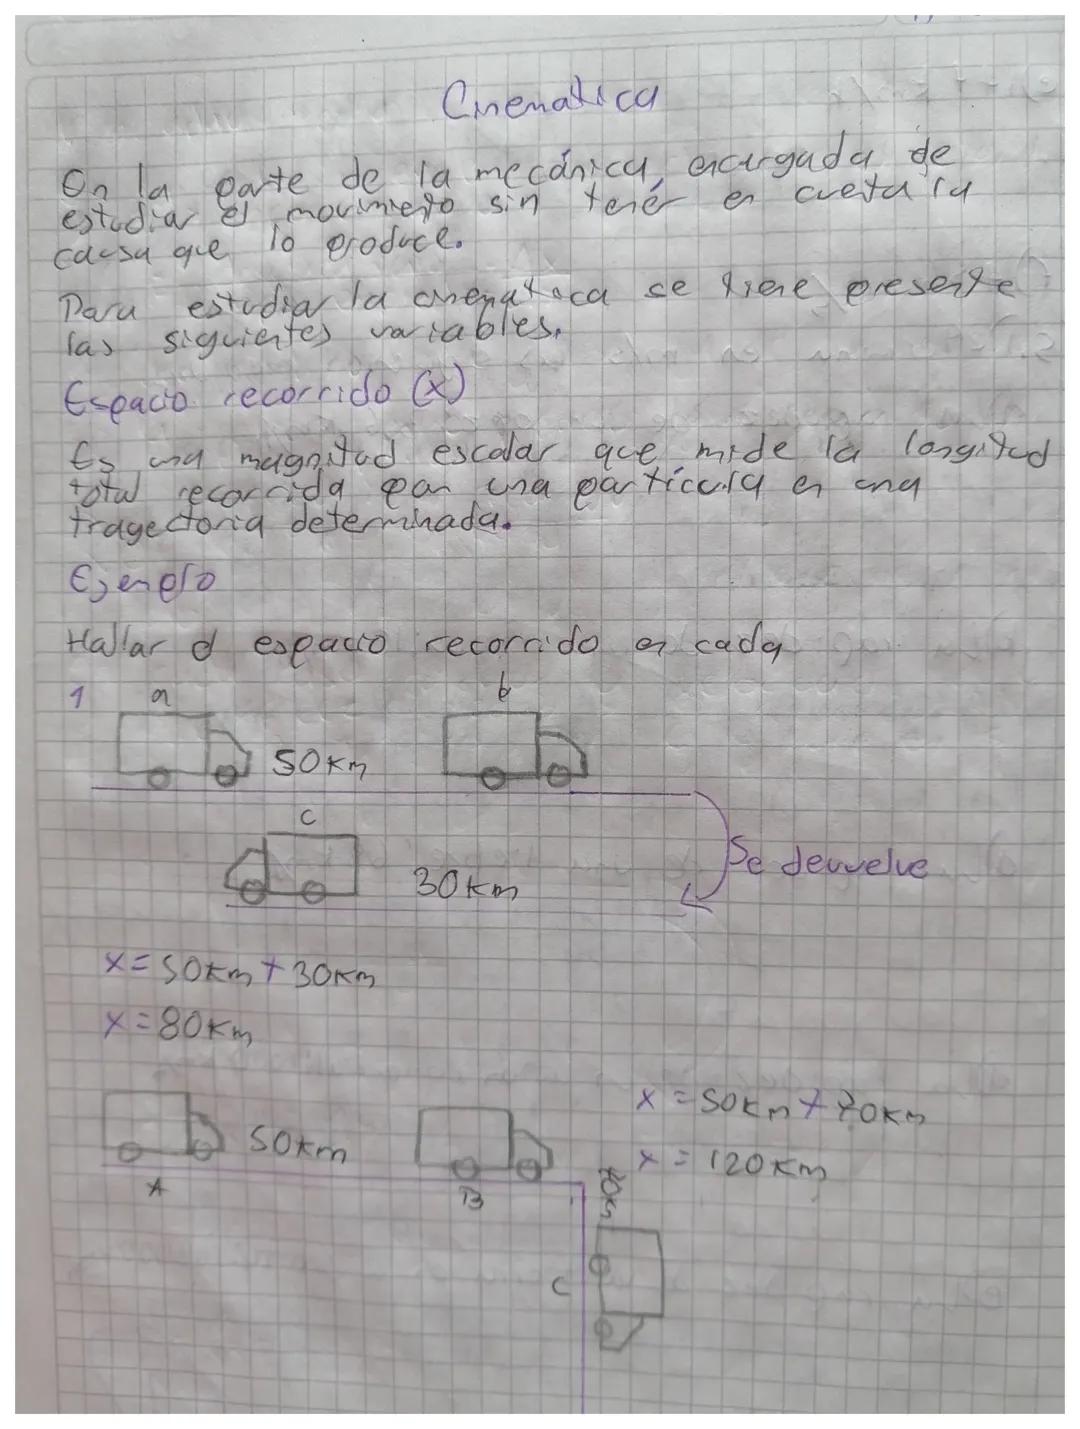 Cinematica
En la parte de la mecánica, encargada de
estudiar el movimiento sin tener en cueta la
causa que lo produce.
Para estudiar la cinematica se tiene presente
las siguientes variables.
Espacio recorrido (x)
Es una magnitud escalar que mide la longitud
total recorrida por una partícula en una
tragectoria determinada.
Ejemplo
Hallar el espacio recorrido en cada
1 a b
50km
c
Se devuelve
30km
x=50km+30km
x=80km
x=50km+70km
50km
x=120km
A B
C